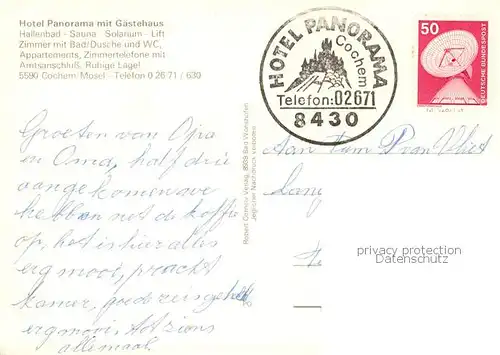 Hotel Panorama mit Gästehaus
Hallenbad - Sauna - Solarium - Lift
Zimmer mit Bad/Dusche und WC,
Appartements, Zimmertelefone mit
Amtsanschluß, Ruhige Lage!
5590 Cochem/Mosel - Telefon 0 26 71 / 630
HOTEL PANORAMA
Cochem
Telefon: 02671
8430
50
DEUTSCHE BUNDESPOST
Groeten van Opa
en Oma, half drie
aangekomen we
hebben net de koffie
op, het is hier alles
erg mooi, pracht
kamer, goede reis gehad
erg mooi, tot ziens
allemaal.
Aan Fam P van Vliet
Lang
privacy protection
Datenschutz